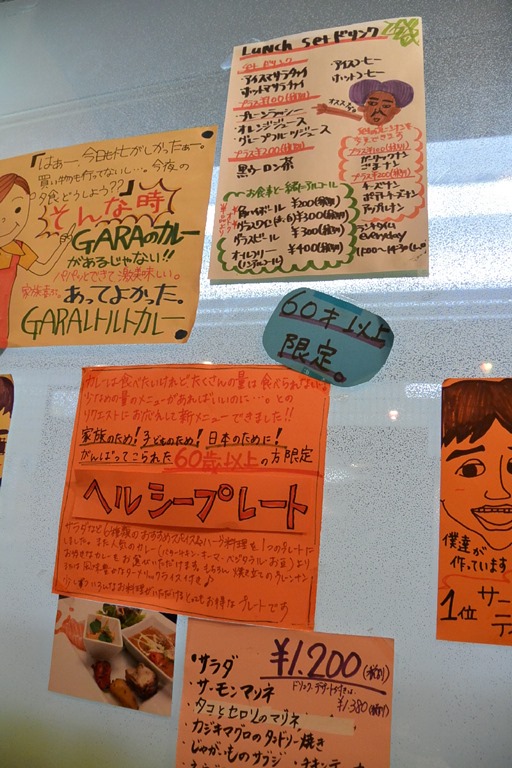 Lunch Set ドリンク
セットドリンク
・アイスマサラチャイ
・ホットマサラチャイ
・アイスコーヒー
・ホットコーヒー
プラス¥100(税別)
・プレーンラッシー
・オレンジジュース
・グレープフルーツジュース
プラス¥200(税別)
・黒ウーロン茶
オススメ
プラス¥100(税別)
ガーリックナン
ゴマナン
プラス¥200(税別)
チーズナン
アップルナン
ランチタイム
everyday
お食事と一緒にアルコール
¥200(税別)
¥300(税別)
・グラスビール ¥300(税別)
・オールフリー ¥400(税別)
(ノンアルコール)
『はぁー、今日も忙がしかったぁー。
買い物も行ってないし…。今夜の
夕食どうしよう??』
そんな時
GARAのカレー
があるじゃない!!
パパッとできて激美味しい。
あってよかった。
GARAレトルトカレー
60才以上
限定。
カレーは食べたいけれどたくさんの量は食べられない。
少なめの量のメニューがあればいいのに…。との
リクエストにお応えして新メニューできました!!
家族のため!子どものため!日本のために!
がんばってこられた60歳以上の方限定
ヘルシープレート
サラダなど6種類のおすすめスパイス&ハーブ料理を1つのプレートに
しました。また人気のカレー(バターチキン・キーマ・ベジタブル・お豆)より
お好きなカレーをお選びいただけます。もちろん焼き立てのプレーンナン
又は風味豊かなターメリックライス付き♪
お得なプレートです
¥1.200(税別)
ドリンク・デザート付きは
¥1.380(税別)
・サラダ
・サーモンマリネ
・タコとセロリのマリネ
・カジキマグロのタンドリー焼き
・じゃがいものサブジ
僕達が
作っています
1位